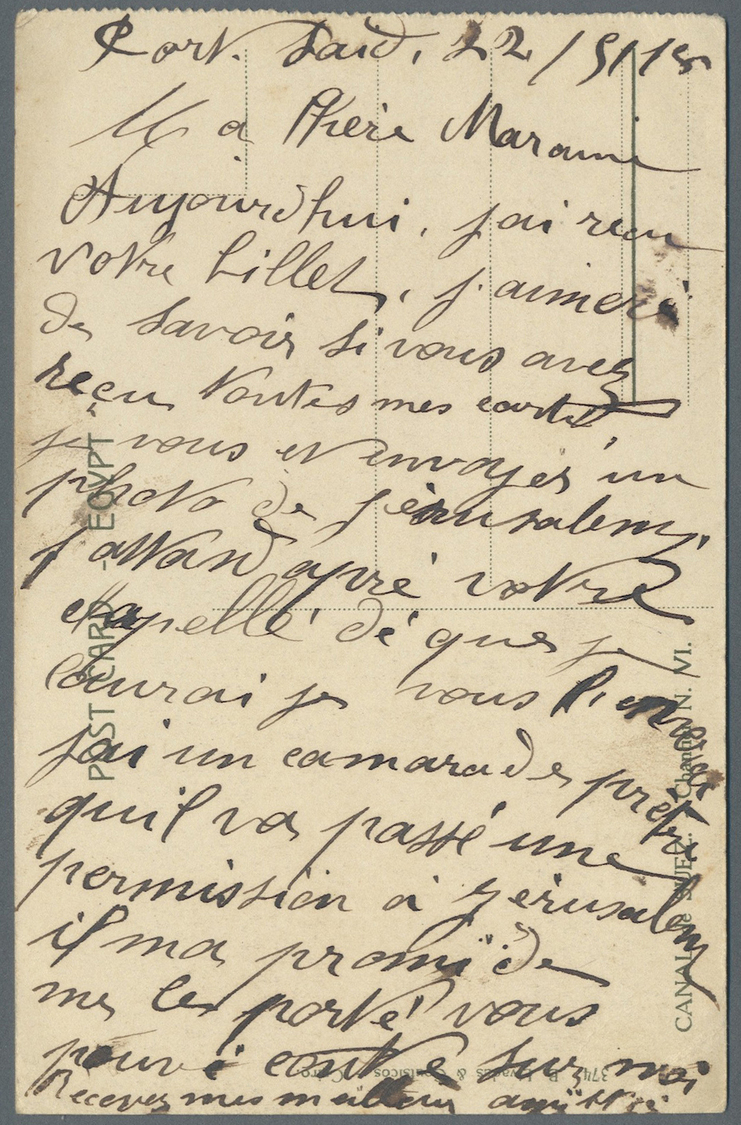 Port. Said, 22/5/18
Ma Chère Maraine
Aujourd'hui, j'ai recu
votre billet, j'aimeré
de savoir si vous avez
recu toutes mes cartes
je vous et envoyer un
photo de Jérusalem,
j'attand apré votre
chapellé dé que je
l'aurai je vous l'enverai
j'ai un camarade prètre
qu'il va passé une
permission à Jérusalem
il ma promi de
me les porté vous
pouvé conté sur moi
Recever mes meilleur amitié
POST CARD - EGYPT
CANAL de SUEZ. - Chantier N. VI.
374